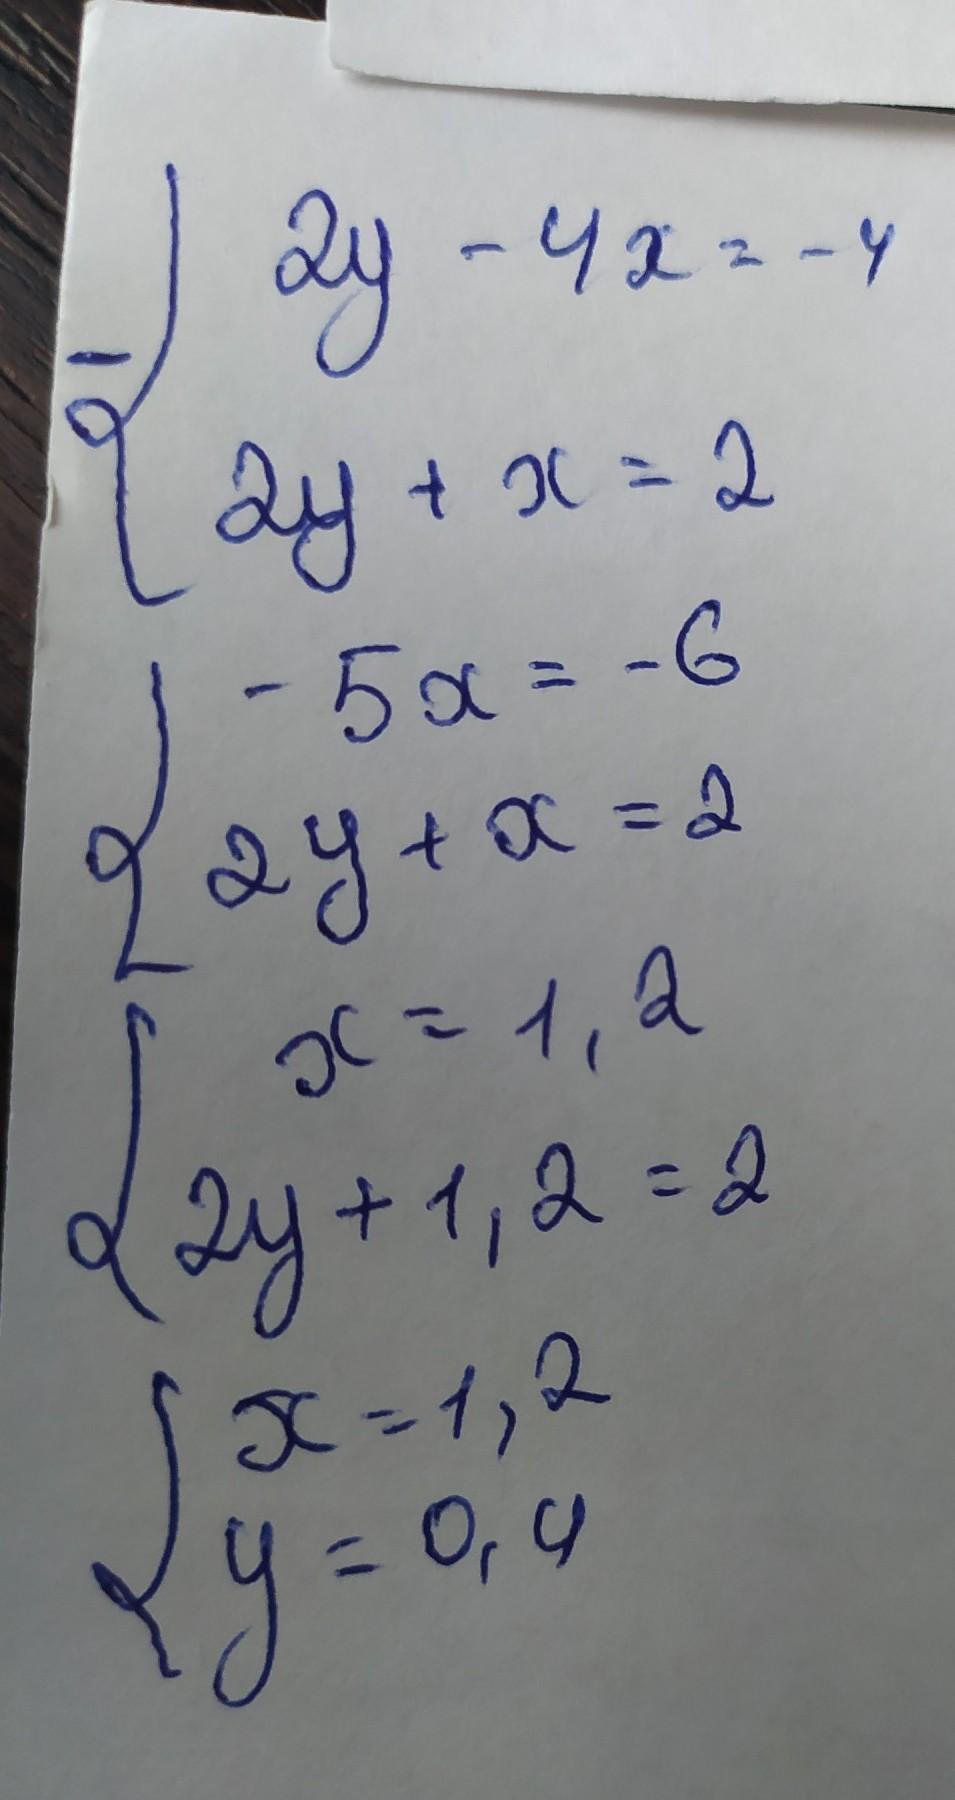 2y - 4x = -4
2y + x = 2
- 5x = -6
2y + x = 2
x = 1,2
2y + 1,2 = 2
x = 1,2
y = 0,4